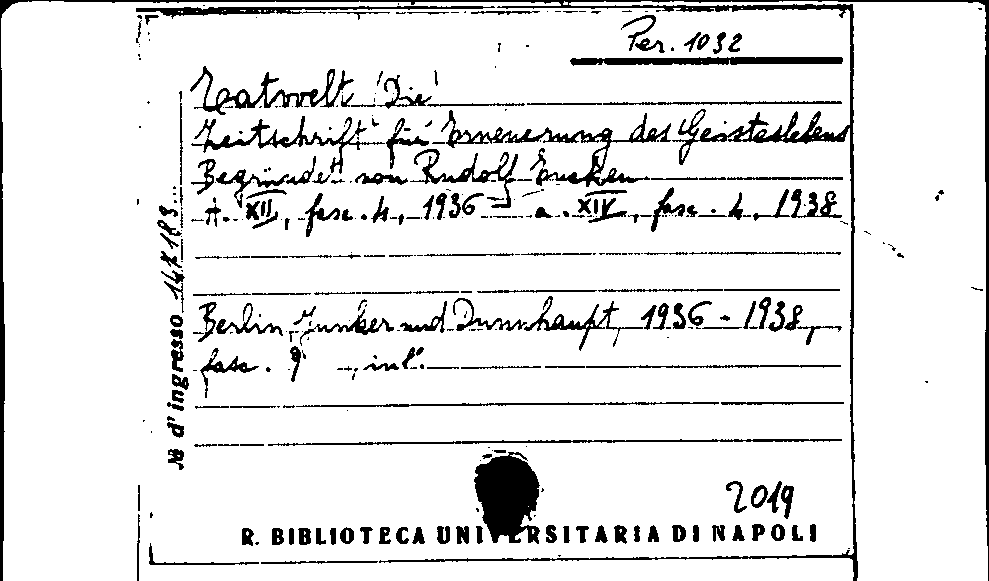 Per. 1032
Tatwelt (Die)
Zeitschrift für Erneuerung des Geisteslebens
Begründet von Rudolf Eucken
A. XII, fasc. 4, 1936 – a. XIV, fasc. 4, 1938
Berlin, Junker und Dünnhaupt, 1936 - 1938,
fasc. 9
№ d'ingresso 147183
2019
R. BIBLIOTECA UNIVERSITARIA DI NAPOLI